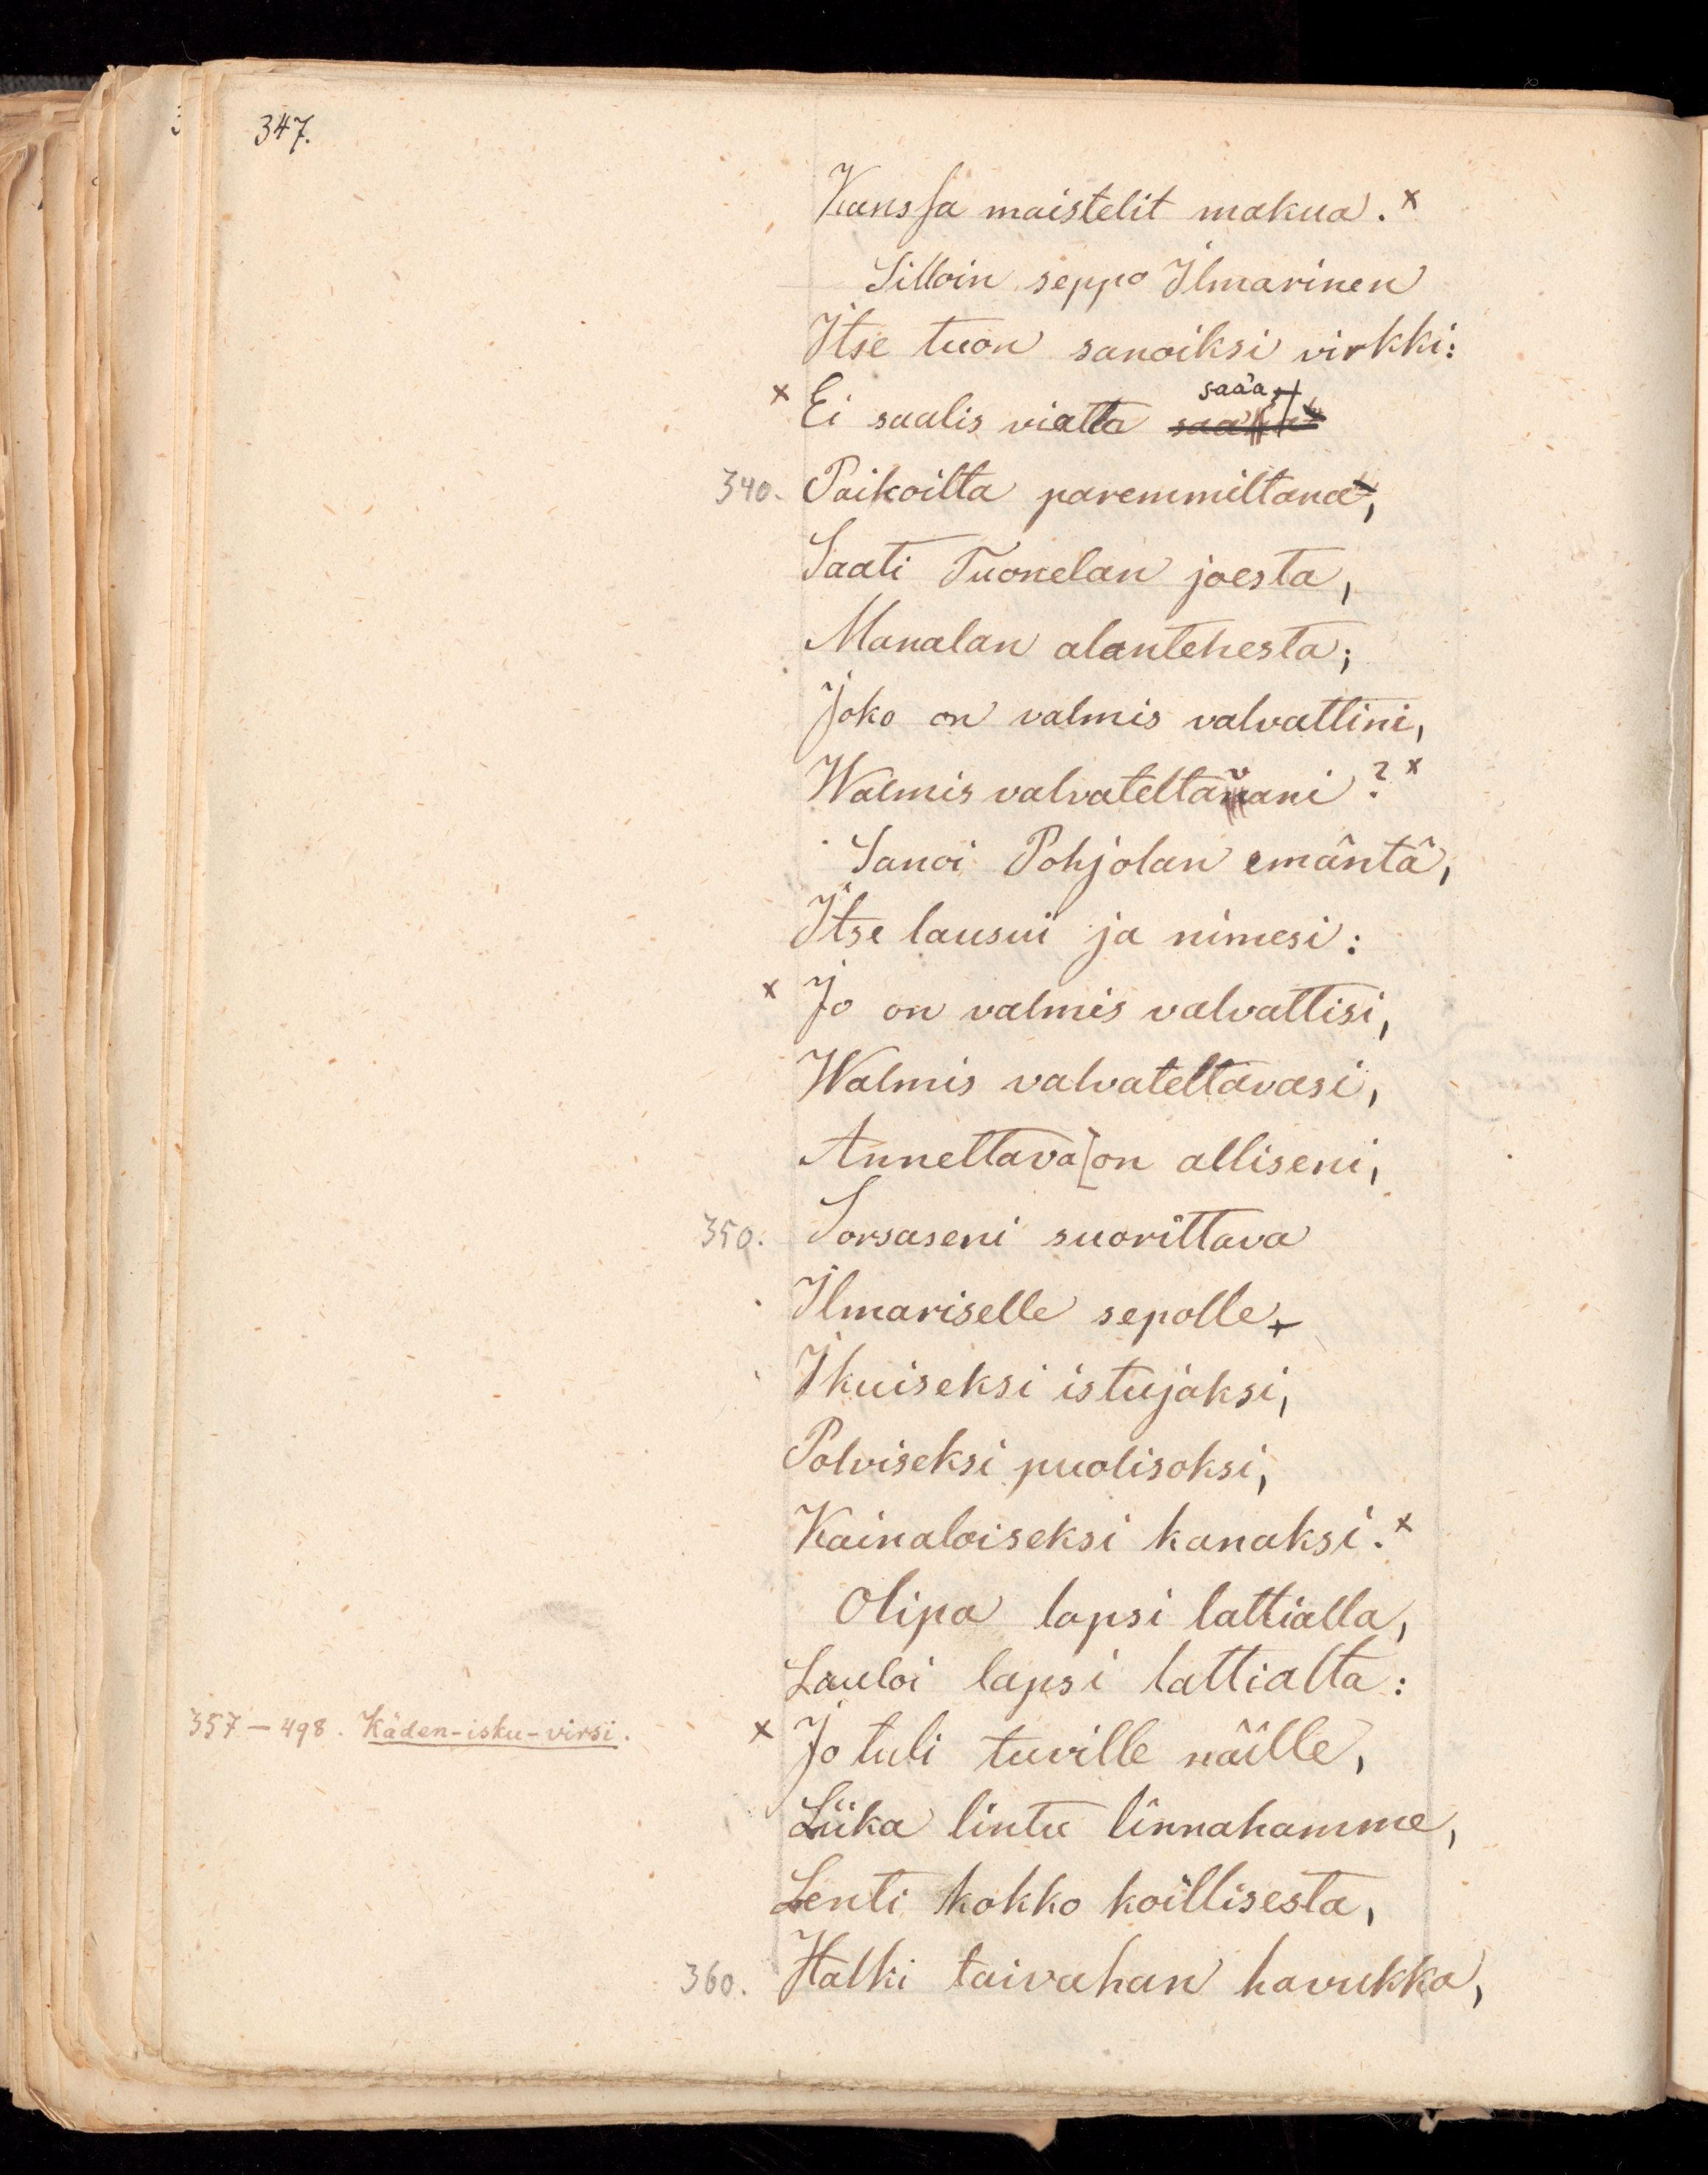 347.
Kanssa maistelit makua. x
Silloin seppo Ilmarinen
Itse tuon sanoiksi virkki:
saa'a,
x Ei saalis viatta
340. Paikoilta paremmiltana,
Saati Tuonelan joesta,
Manalan alantehesta;
Joko on valmis valvattini,
Walmis valvateltavani? x
Sanoi Pohjolan emäntä,
Itse lausui ja nimesi:
x Jo on valmis valvattisi,
Walmis valvateltavasi,
Annettava [on alliseni,
350. Sorsaseni suorittava
Ilmariselle sepolle
Ikuiseksi istujaksi,
Polviseksi puolisoksi,
Kainaloiseksi kanaksi. x
Olipa lapsi lattialla,
Lauloi lapsi lattialta:
357–498. Käden-isku-virsi.
x Jo tuli tuville näille,
Liika lintu linnahamme,
Lenti kokko koillisesta,
360. Halki taivahan havukka,